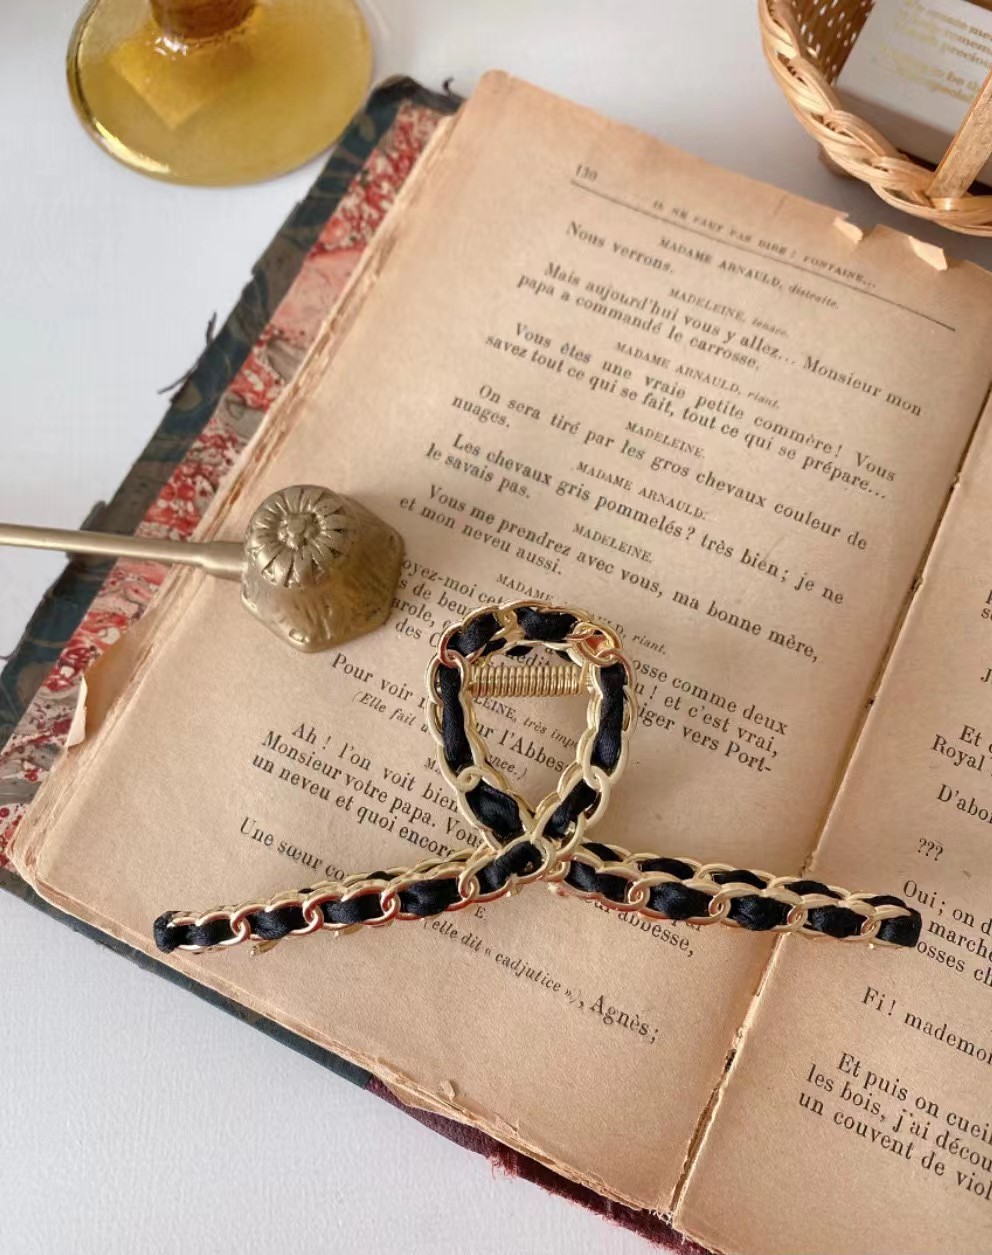 130
IL NE FAUT PAS DIRE : FONTAINE...
MADAME ARNAULD, distraite.
Nous verrons.
MADELEINE, tenace.
Mais aujourd'hui vous y allez... Monsieur mon
papa a commandé le carrosse.
MADAME ARNAULD, riant.
Vous êtes une vraie petite commère! Vous
savez tout ce qui se fait, tout ce qui se prépare...
MADELEINE.
On sera tiré par les gros chevaux couleur de
nuages.
MADAME ARNAULD.
Les chevaux gris pommelés? très bien; je ne
le savais pas.
MADELEINE.
Vous me prendrez avec vous, ma bonne mère,
et mon neveu aussi.
MADAME riant.
oyez-moi cet osse comme deux
s de beu u! et c'est vrai,
arole, iger vers Port-
des
LEINE, très
Pour voir ur l'Abbes
(Elle fait nce.)
Ah! l'on voit bien
Monsieur votre papa. Vous
un neveu et quoi encore
Une sœur abbesse,
E.
(elle dit « cadjutice »), Agnès;
Et
Royal
D'abo
???
Oui; on d
marche
osses ch
Fi! mademoi
Et puis on cueil
les bois, j'ai décou
un couvent de viol